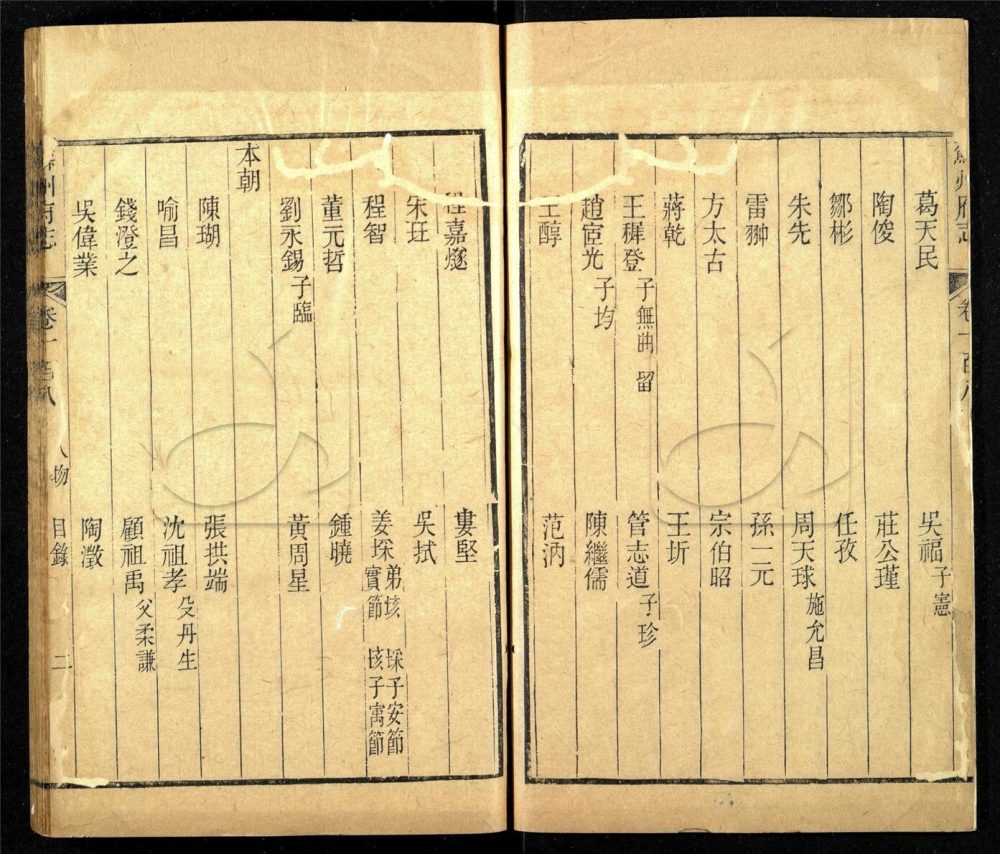 葛天民 吳福子憲
陶俊 莊公瑾
鄒彬 任孜
朱先 周天球施允昌
雷翀 孫一元
方太古 宗伯昭
蔣乾 王圻
王穉登子無曲 留 管志道子珍
趙宧光子均 陳繼儒
王醇 范汭
程嘉燧 婁堅
宋珏 吳拭
程智 姜埰弟垓 埰子安節 實節 垓子寓節
董元哲 鍾曉
劉永錫子臨 黃周星
本朝
陳瑚 張拱端
喻昌 沈祖孝殳丹生
錢澄之 顧祖禹父柔謙
吳偉業 陶澂
蘇州府志 卷一百八 人物 目錄 二